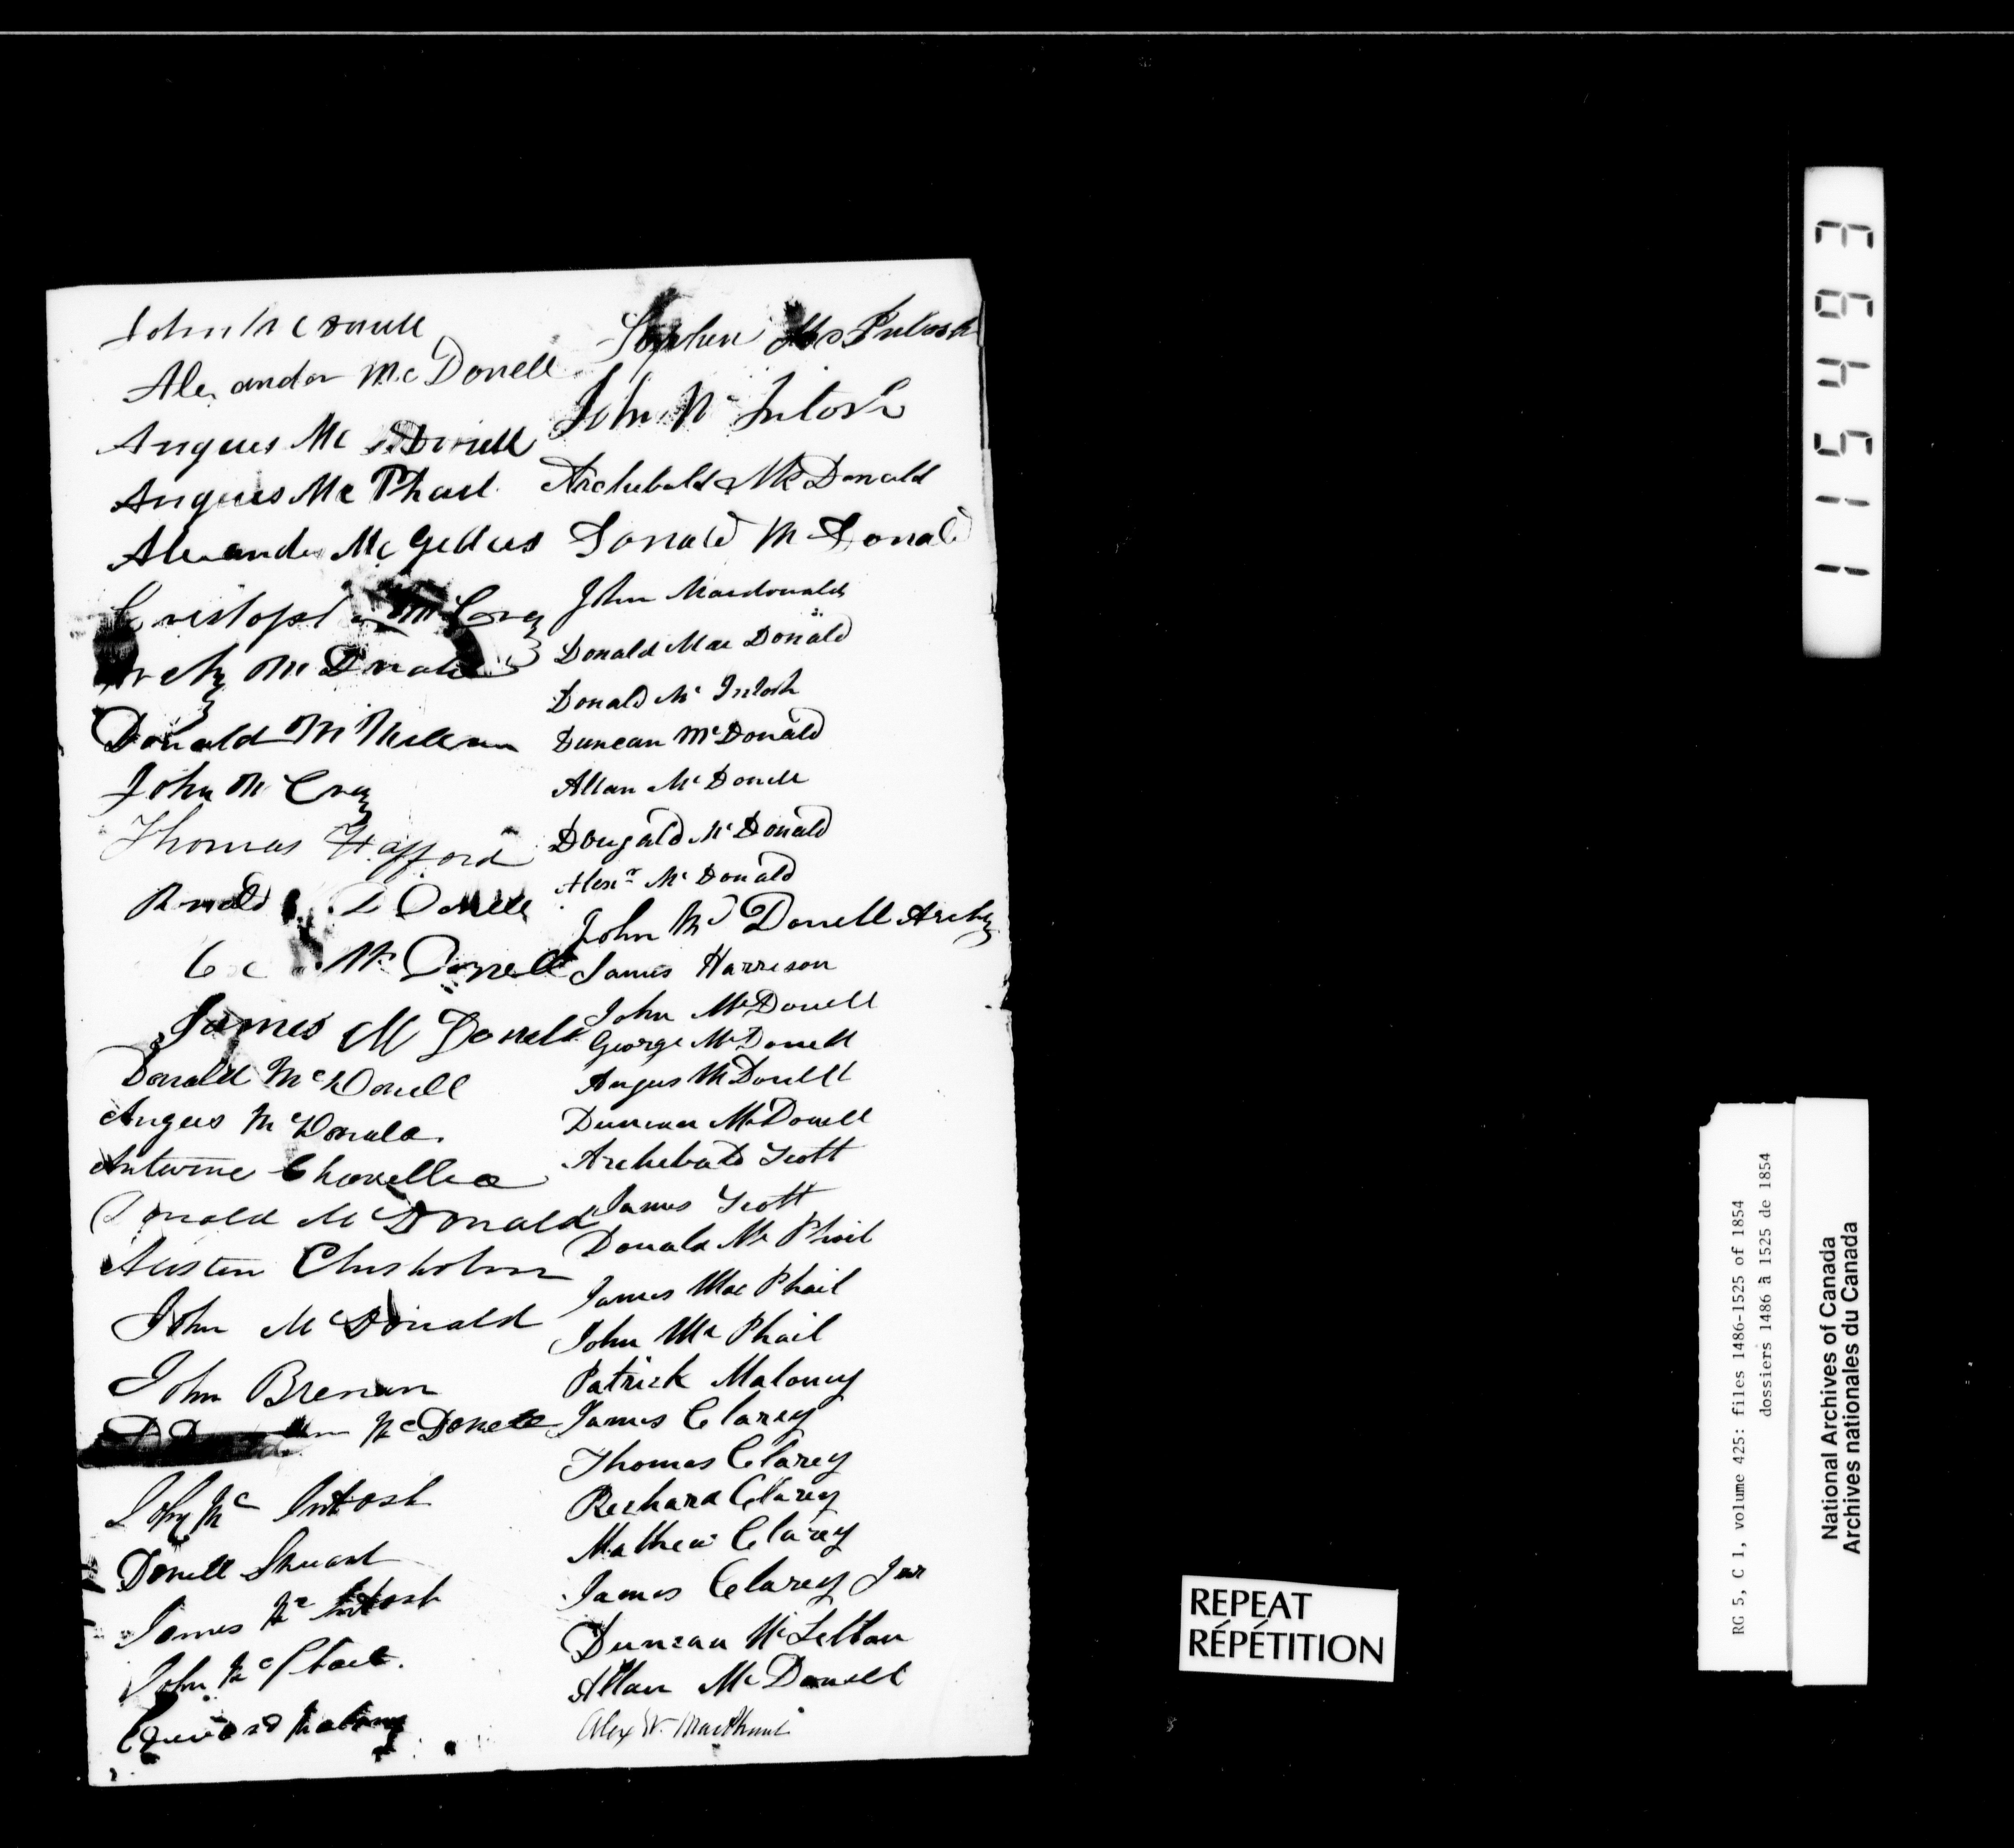 John McDonell
Alexander McDonell
Angus Mc Donell
Angus Mc Phail
Alexander Mc Gillies
McCray
Archy McDonald
Donald McMillan
John McCray
Thomas Hafford
McDonell
James McDonell
Donald McDonell
Angus McDonald
Antwine
Donald McDonald
Austin Chisholm
John McDonald
John Brenan
McDonell
John Mc Intosh
Donell Stuart
James Mc Intosh
John McPhail
Edward Malony
Stephen McIntosh
John McIntosh
Archibald McDonald
Donald McDonald
John Macdonald
Donald Mac Donald
Donald Mc Intosh
Duncan McDonald
Allan McDonell
Dougald McDonald
Alexr McDonald
John McDonell Archy
James Harrison
John McDonell
George McDonell
Angus McDonell
Duncan McDonell
Archibald Scott
James Scott
Donald Mc Phail
James Mac Phail
John Mc Phail
Patrick Maloney
James Clarey
Thomas Clarey
Richard Clarey
Mathew Clarey
James Clarey Jnr
Duncan McLellan
Allan McDonell
Alex W.
REPEAT
RÉPÉTITION
115463
RG 5, C 1, volume 425: files 1486-1525 of 1854
dossiers 1486 à 1525 de 1854
National Archives of Canada
Archives nationales du Canada